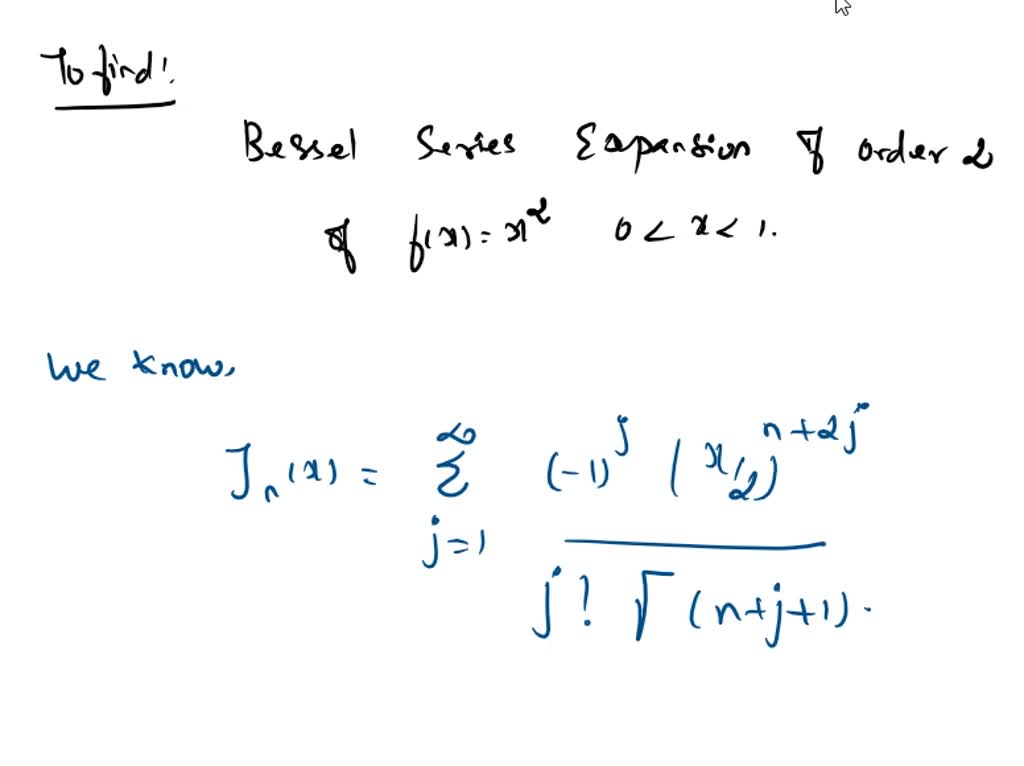 To find:
Bessel Series Expansion of order 2
of f(x) = x² 0 < x < 1.
We know,
Jₙ(x) = ∞ Σ j=1 (-1)^j (x/2)^(n+2j)
j! Γ(n+j+1).